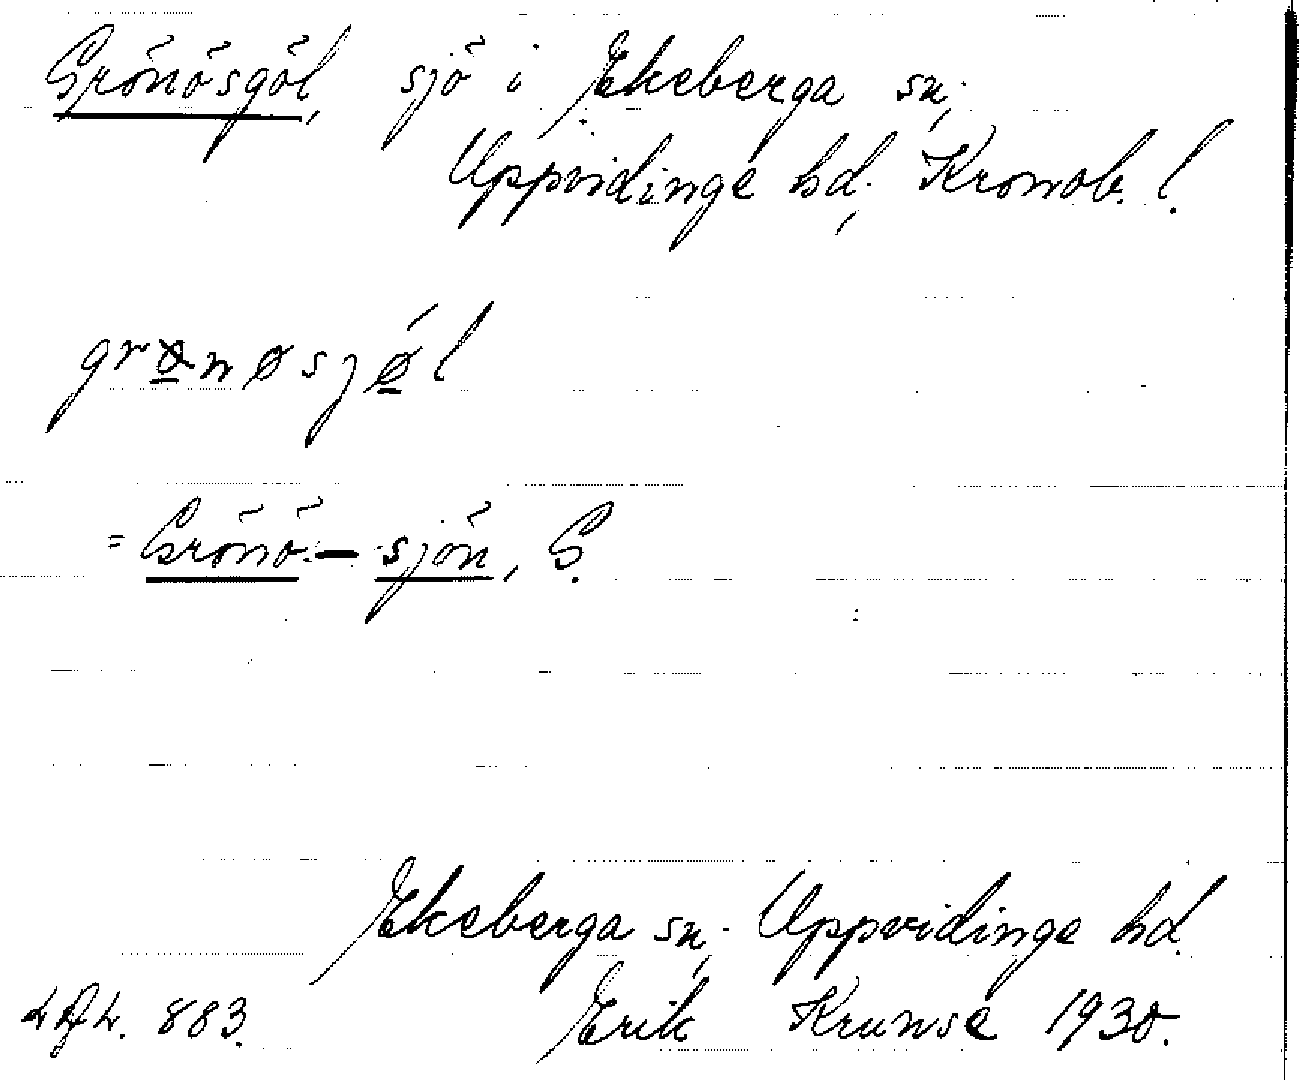 Grönösgöl, sjö i Ekeberga sn,
Uppvidinge hd, Kronob. l.
grønøsjǿl
= Grönö-sjön, G.
Ekeberga sn, Uppvidinge hd.
883. Erik Krunse 1930.